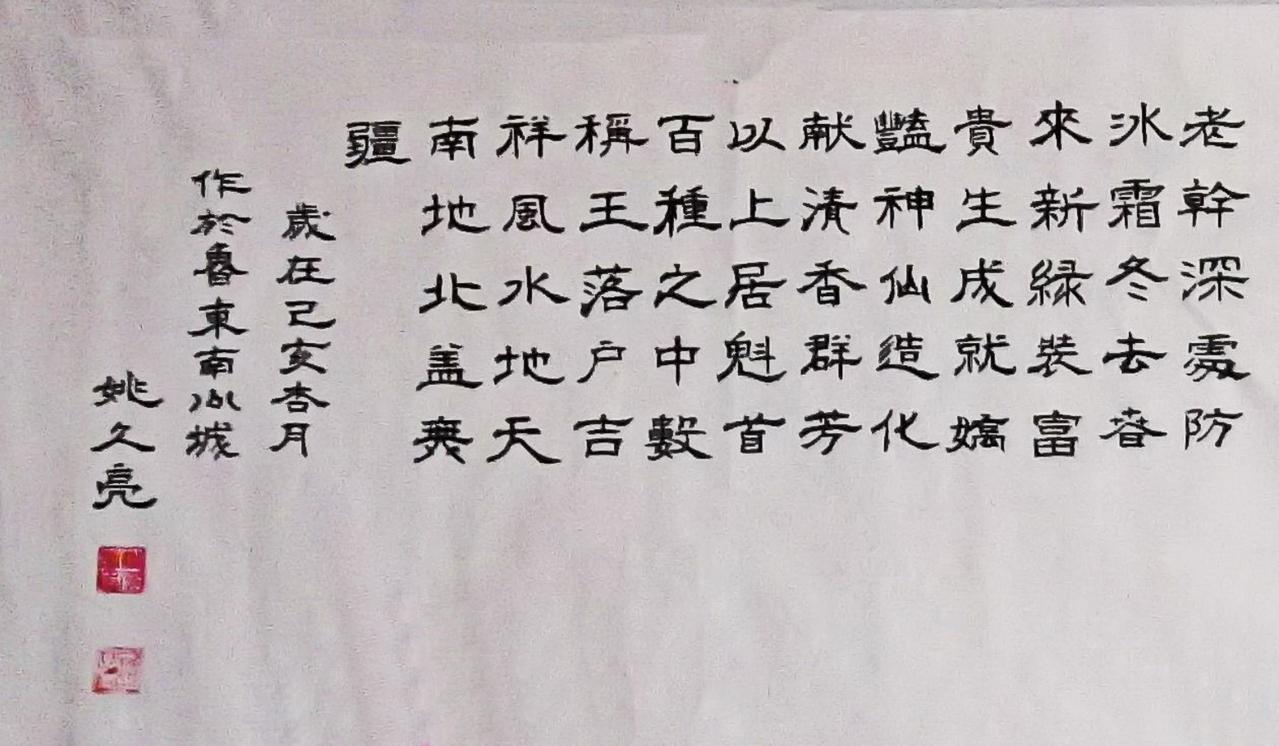 老幹深處防
冰霜冬去春
來新緑裝富
貴生成就嬌
豔神仙造化
献清香群芳
以上居魁首
百種之中數
稱王落户吉
祥風水地天
南地北盖無
疆
歲在己亥杏月
作於魯東南小城
姚久亮